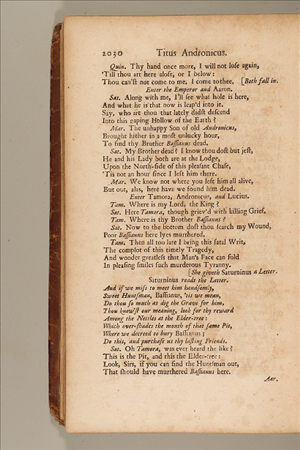 2030 Titus Andronicus.
Quin. Thy hand once more, I will not lose again,
'Till thou art here aloft, or I below:
Thou can'st not come to me, I come to thee. [Both fall in.
Enter the Emperor and Aaron.
Sat. Along with me, I'll see what hole is here,
And what he is that now is leap'd into it.
Say, who art thou that lately didst descend
Into this gaping Hollow of the Earth?
Mar. The unhappy Son of old Andronicus,
Brought hither in a most unlucky hour,
To find thy Brother Bassianus dead.
Sat. My Brother dead? I know thou dost but jest,
He and his Lady both are at the Lodge,
Upon the North-side of this pleasant Chase,
'Tis not an hour since I left him there.
Mar. We know not where you left him all alive,
But out, alas, here have we found him dead.
Enter Tamora, Andronicus, and Lucius.
Tam. Where is my Lord, the King?
Sat. Here Tamora, though griev'd with killing Grief.
Tam. Where is thy Brother Bassianus?
Sat. Now to the bottom dost thou search my Wound,
Poor Bassianus here lyes murthered.
Tam. Then all too late I bring this fatal Writ,
The complot of this timely Tragedy,
And wonder greatly that Man's Face can fold
In pleasing smiles such murderous Tyranny.
[She giveth Saturninus a Letter.
Saturninus reads the Letter.
And if we miss to meet him handsomly,
Sweet Huntsman, Bassianus, 'tis we mean,
Do thou so much as dig the Grave for him,
Thou know'st our meaning, look for thy reward
Among the Nettles at the Elder-tree:
Which over-shades the mouth of that same Pit,
Where we decreed to bury Bassianus;
Do this, and purchase us thy lasting Friends.
Sat. Oh Tamora, was ever heard the like?
This is the Pit, and this the Elder-tree:
Look, Sirs, if you can find the Huntsman out,
That should have murthered Bassianus here.
Aar.